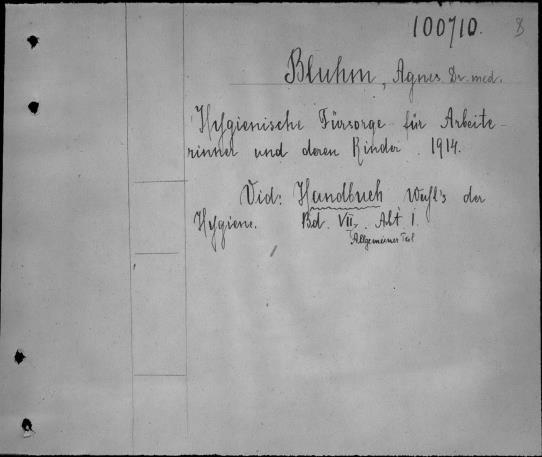 100710. 8
Bluhm, Agnes Dr. med.
Hygienische Fürsorge für Arbeite-
rinnen und deren Kinder. 1914.
Vid: Handbuch Weyl's der
Hygiene. Bd. VII, Abt I.
Allgemeiner Teil